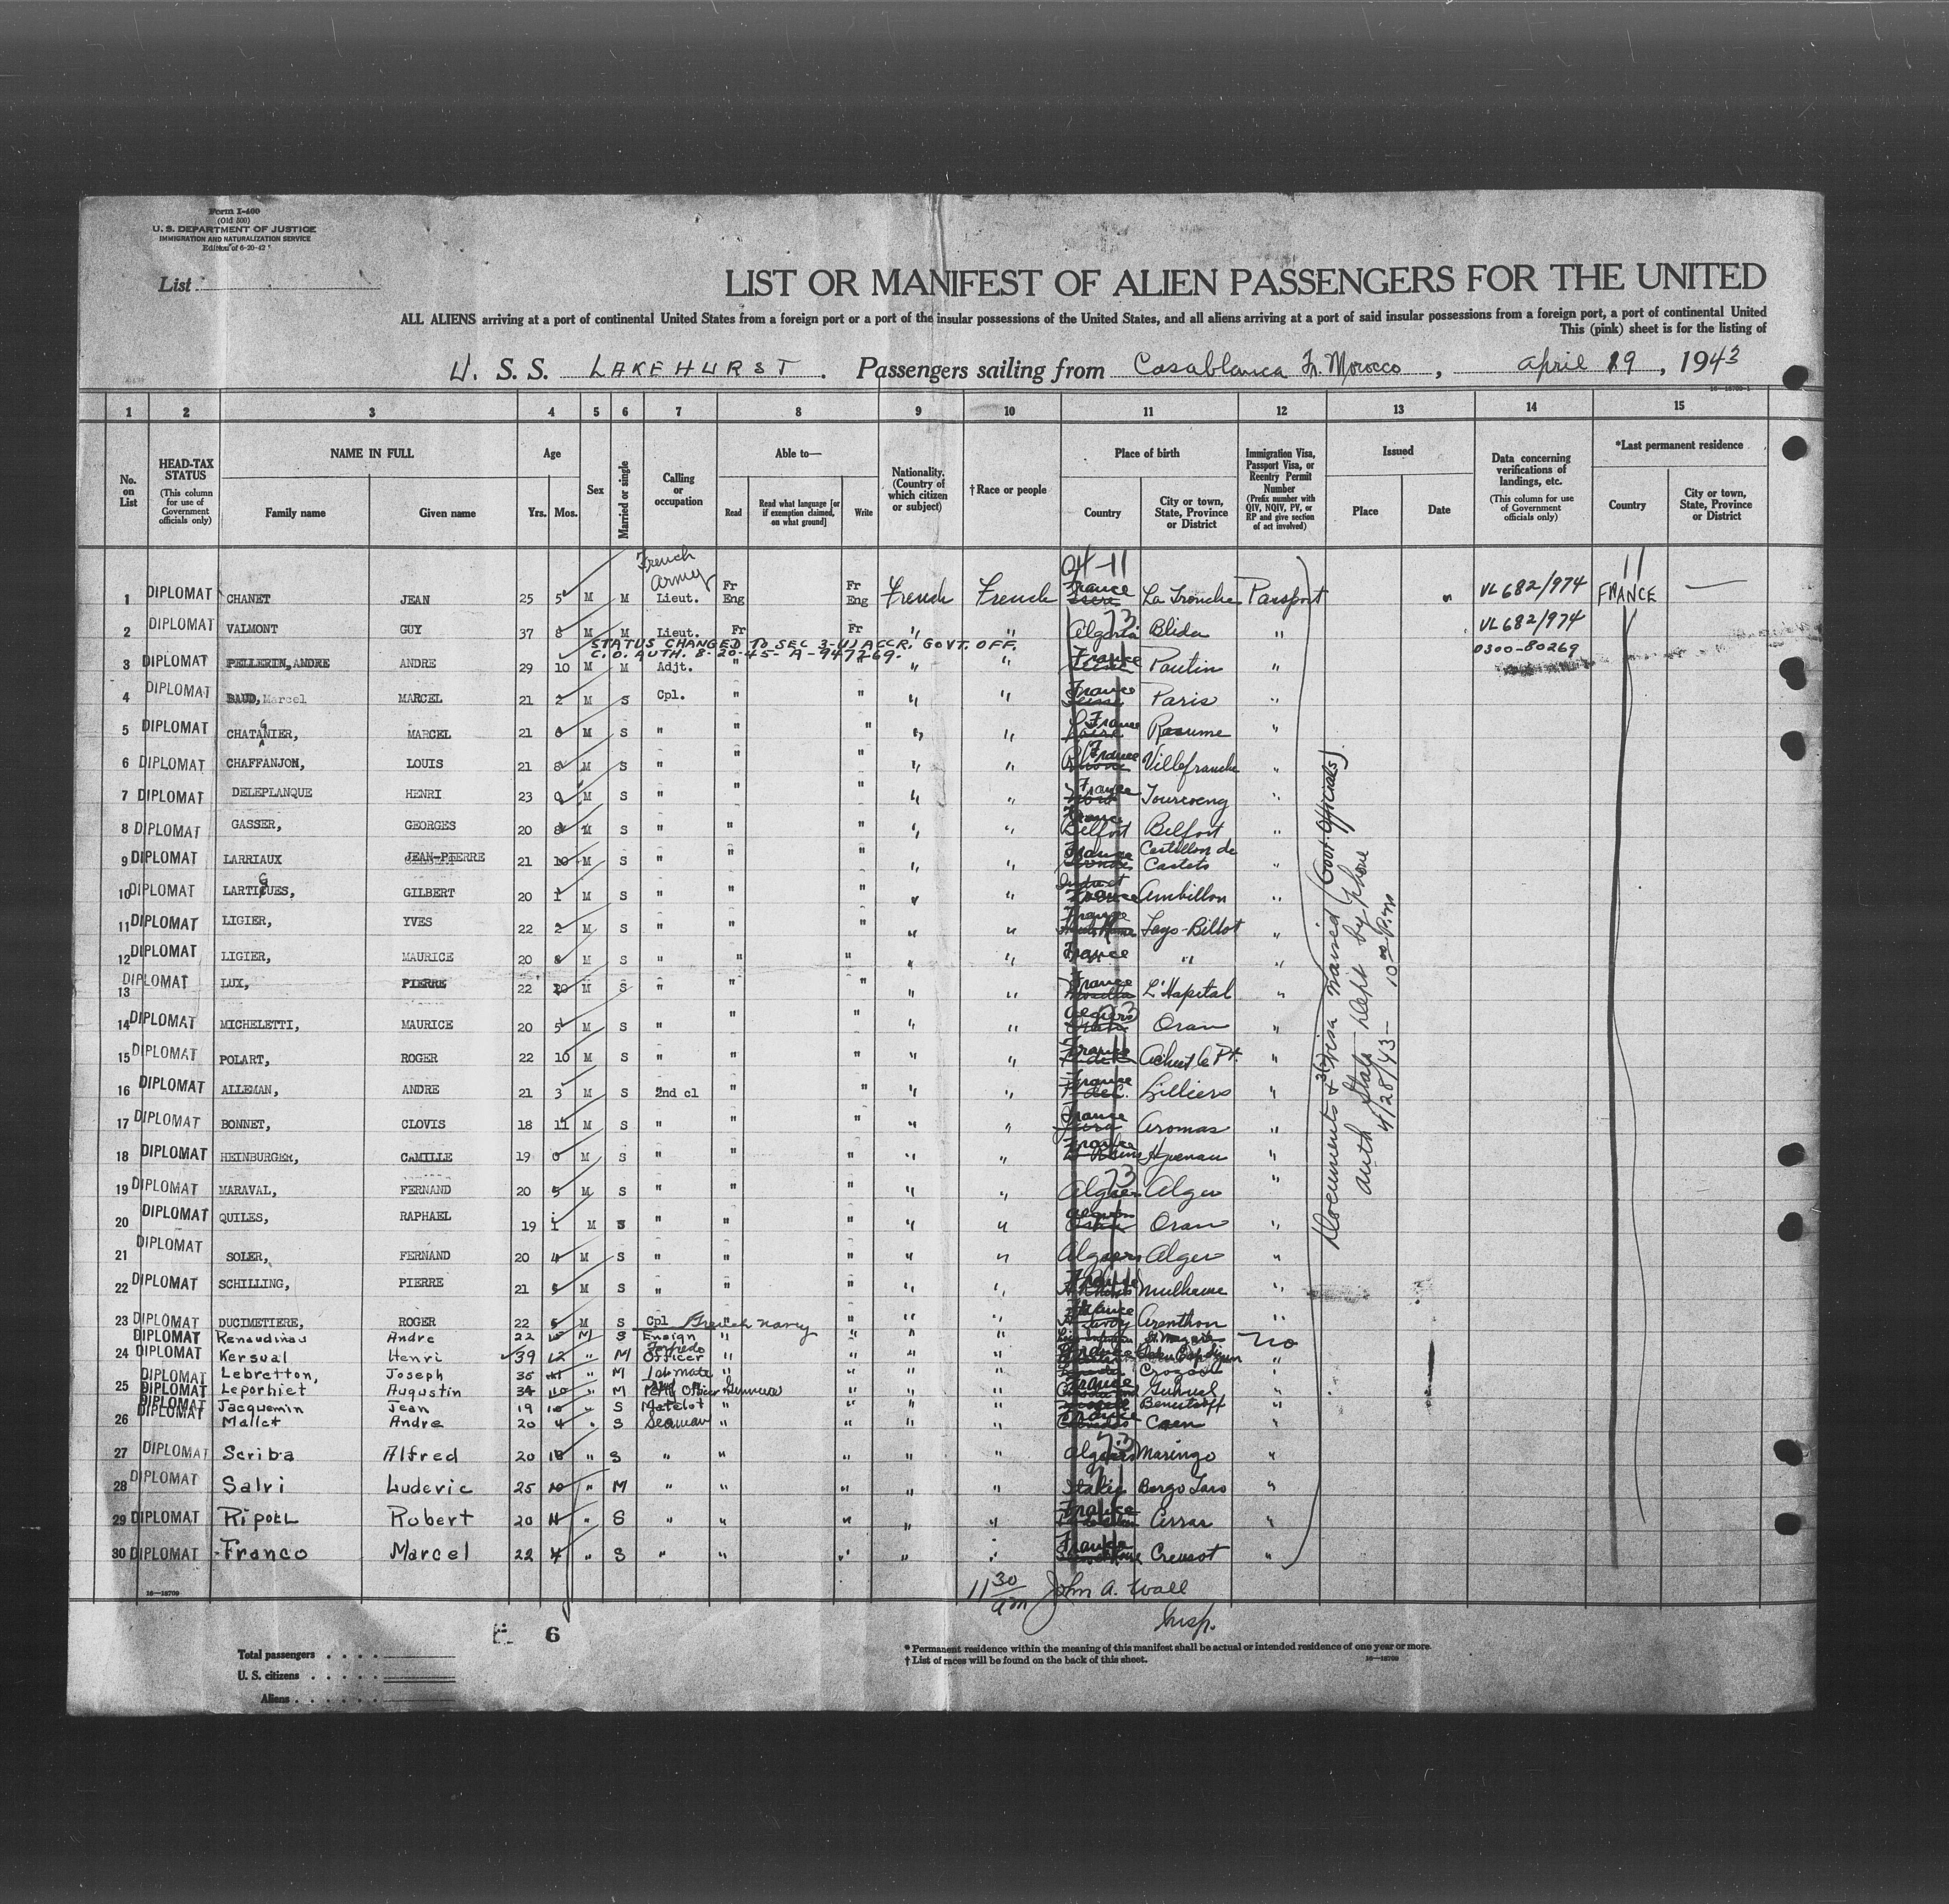 Form I-400
(Old 500)
U. S. DEPARTMENT OF JUSTICE
IMMIGRATION AND NATURALIZATION SERVICE
Edition of 6-20-42
List
LIST OR MANIFEST OF ALIEN PASSENGERS FOR THE UNITED
ALL ALIENS arriving at a port of continental United States from a foreign port or a port of the insular possessions of the United States, and all aliens arriving at a port of said insular possessions from a foreign port, a port of continental United
This (pink) sheet is for the listing of
U. S. S. LAKEHURST. Passengers sailing from Casablanca Fr. Morocco, April 19, 1943
1 2 3 4 5 6 7 8 9 10 11 12 13 14 15
No. on List
HEAD-TAX STATUS (This column for use of Government officials only)
NAME IN FULL Family name Given name
Age Yrs. Mos.
Sex
Married or single
Calling or occupation
Able to— Read Read what language [or if exemption claimed, on what ground] Write
Nationality. (Country of which citizen or subject)
†Race or people
Place of birth Country City or town, State, Province or District
Immigration Visa, Passport Visa, or Reentry Permit Number (Prefix number with QIV, NQIV, PV, or RP and give section of act involved)
Issued Place Date
Data concerning verifications of landings, etc. (This column for use of Government officials only)
*Last permanent residence Country City or town, State, Province or District
French Army 04-11 11
1 DIPLOMAT CHANET JEAN 25 5 M M Lieut. Fr Eng Fr Eng French French France La Tronche Passport " VL682/974 FRANCE —
2 DIPLOMAT VALMONT GUY 37 8 M M Lieut. Fr Fr " " Algeria 73 Blida " VL682/974
STATUS CHANGED TO SEC 3-(1) ACCR. GOVT. OFF.
C.O. AUTH. 8-20-45- A-947769. 0300-80269
3 DIPLOMAT PELLERIN, ANDRE ANDRE 29 10 M M Adjt. " " " " France Pautin "
4 DIPLOMAT BAUD, Marcel MARCEL 21 2 M S Cpl. " " " " France Paris "
5 DIPLOMAT CHATANIER, G MARCEL 21 8 M S " " " " " France Roaume "
6 DIPLOMAT CHAFFANJON, LOUIS 21 8 M S " " " " " France Villefranche "
7 DIPLOMAT DELEPLANQUE HENRI 23 0 M S " " " " " France Tourcoeng "
8 DIPLOMAT GASSER, GEORGES 20 8 M S " " " " " France Belfort Belfort "
9 DIPLOMAT LARRIAUX JEAN-PIERRE 21 10 M S " " " " " France Castillon de Castets "
10 DIPLOMAT LARTIGUES, GILBERT 20 1 M S " " " " " France Ambillon "
11 DIPLOMAT LIGIER, YVES 22 2 M S " " " " " France Fays-Billot "
12 DIPLOMAT LIGIER, MAURICE 20 8 M S " " " " " France " "
13 DIPLOMAT LUX, PIERRE 22 10 M S " " " " " France L'Hopital "
14 DIPLOMAT MICHELETTI, MAURICE 20 5 M S " " " " " Algiers Oran "
15 DIPLOMAT POLART, ROGER 22 10 M S " " " " " France Achiet le Pt. "
16 DIPLOMAT ALLEMAN, ANDRE 21 3 M S 2nd cl " " " " France Lilliers "
17 DIPLOMAT BONNET, CLOVIS 18 11 M S " " " " " France Aromas "
18 DIPLOMAT HEINBURGER, CAMILLE 19 0 M S " " " " " France Hguenau "
19 DIPLOMAT MARAVAL, FERNAND 20 5 M S " " " " " Algiers 73 Alger "
20 DIPLOMAT QUILES, RAPHAEL 19 1 M S " " " " " Oran "
21 DIPLOMAT SOLER, FERNAND 20 4 M S " " " " " Algiers Alger "
22 DIPLOMAT SCHILLING, PIERRE 21 5 M S " " " " " France Mulhouse "
23 DIPLOMAT DUCIMETIERE, ROGER 22 6 M S Cpl French Navy " " " France Arenthon "
DIPLOMAT Renaudinau Andre 22 10 M S Ensign " " " " No
24 DIPLOMAT Kersual Henri 39 12 " M Torpedo Officer " " " "
DIPLOMAT Lebretton, Joseph 35 11 " M 1st mate " " " " Crozon
25 DIPLOMAT Leporhiet Augustin 34 10 " M Petty Officer Gunner " " " France Guhuel
DIPLOMAT Jacquemin Jean 19 10 " S Matelot " " " "
26 DIPLOMAT Mallet Andre 20 4 " S Seaman " " " " France Caen "
27 DIPLOMAT Scriba Alfred 20 10 " S " " " " " Algiers 73 Maringo "
28 DIPLOMAT Salvi Luderic 25 10 " M " " " " " Italy Borgo Taro "
29 DIPLOMAT Ripoll Robert 20 11 " S " " " " " France Arras "
30 DIPLOMAT Franco Marcel 22 4 " S " " " " " France Creusot "
Documents & visa waived (Govt. Officials)
auth State Dept by Phone
4/28/43— 10 00 P.m
16—18709
11 30 am John A. Wall
Insp.
6
Total passengers
U. S. citizens
Aliens
* Permanent residence within the meaning of this manifest shall be actual or intended residence of one year or more.
† List of races will be found on the back of this sheet. 16—18709